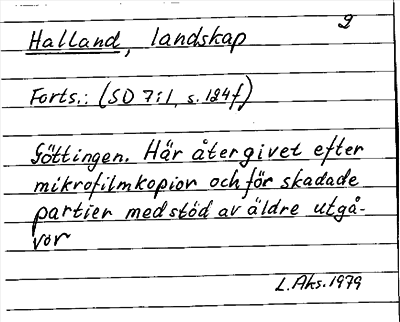 2
Halland, landskap
Forts.: (SD 7:1, s. 124f)
Göttingen. Här återgivet efter
mikrofilmkopior och för skadade
partier med stöd av äldre utgå-
vor
L. Aks. 1979